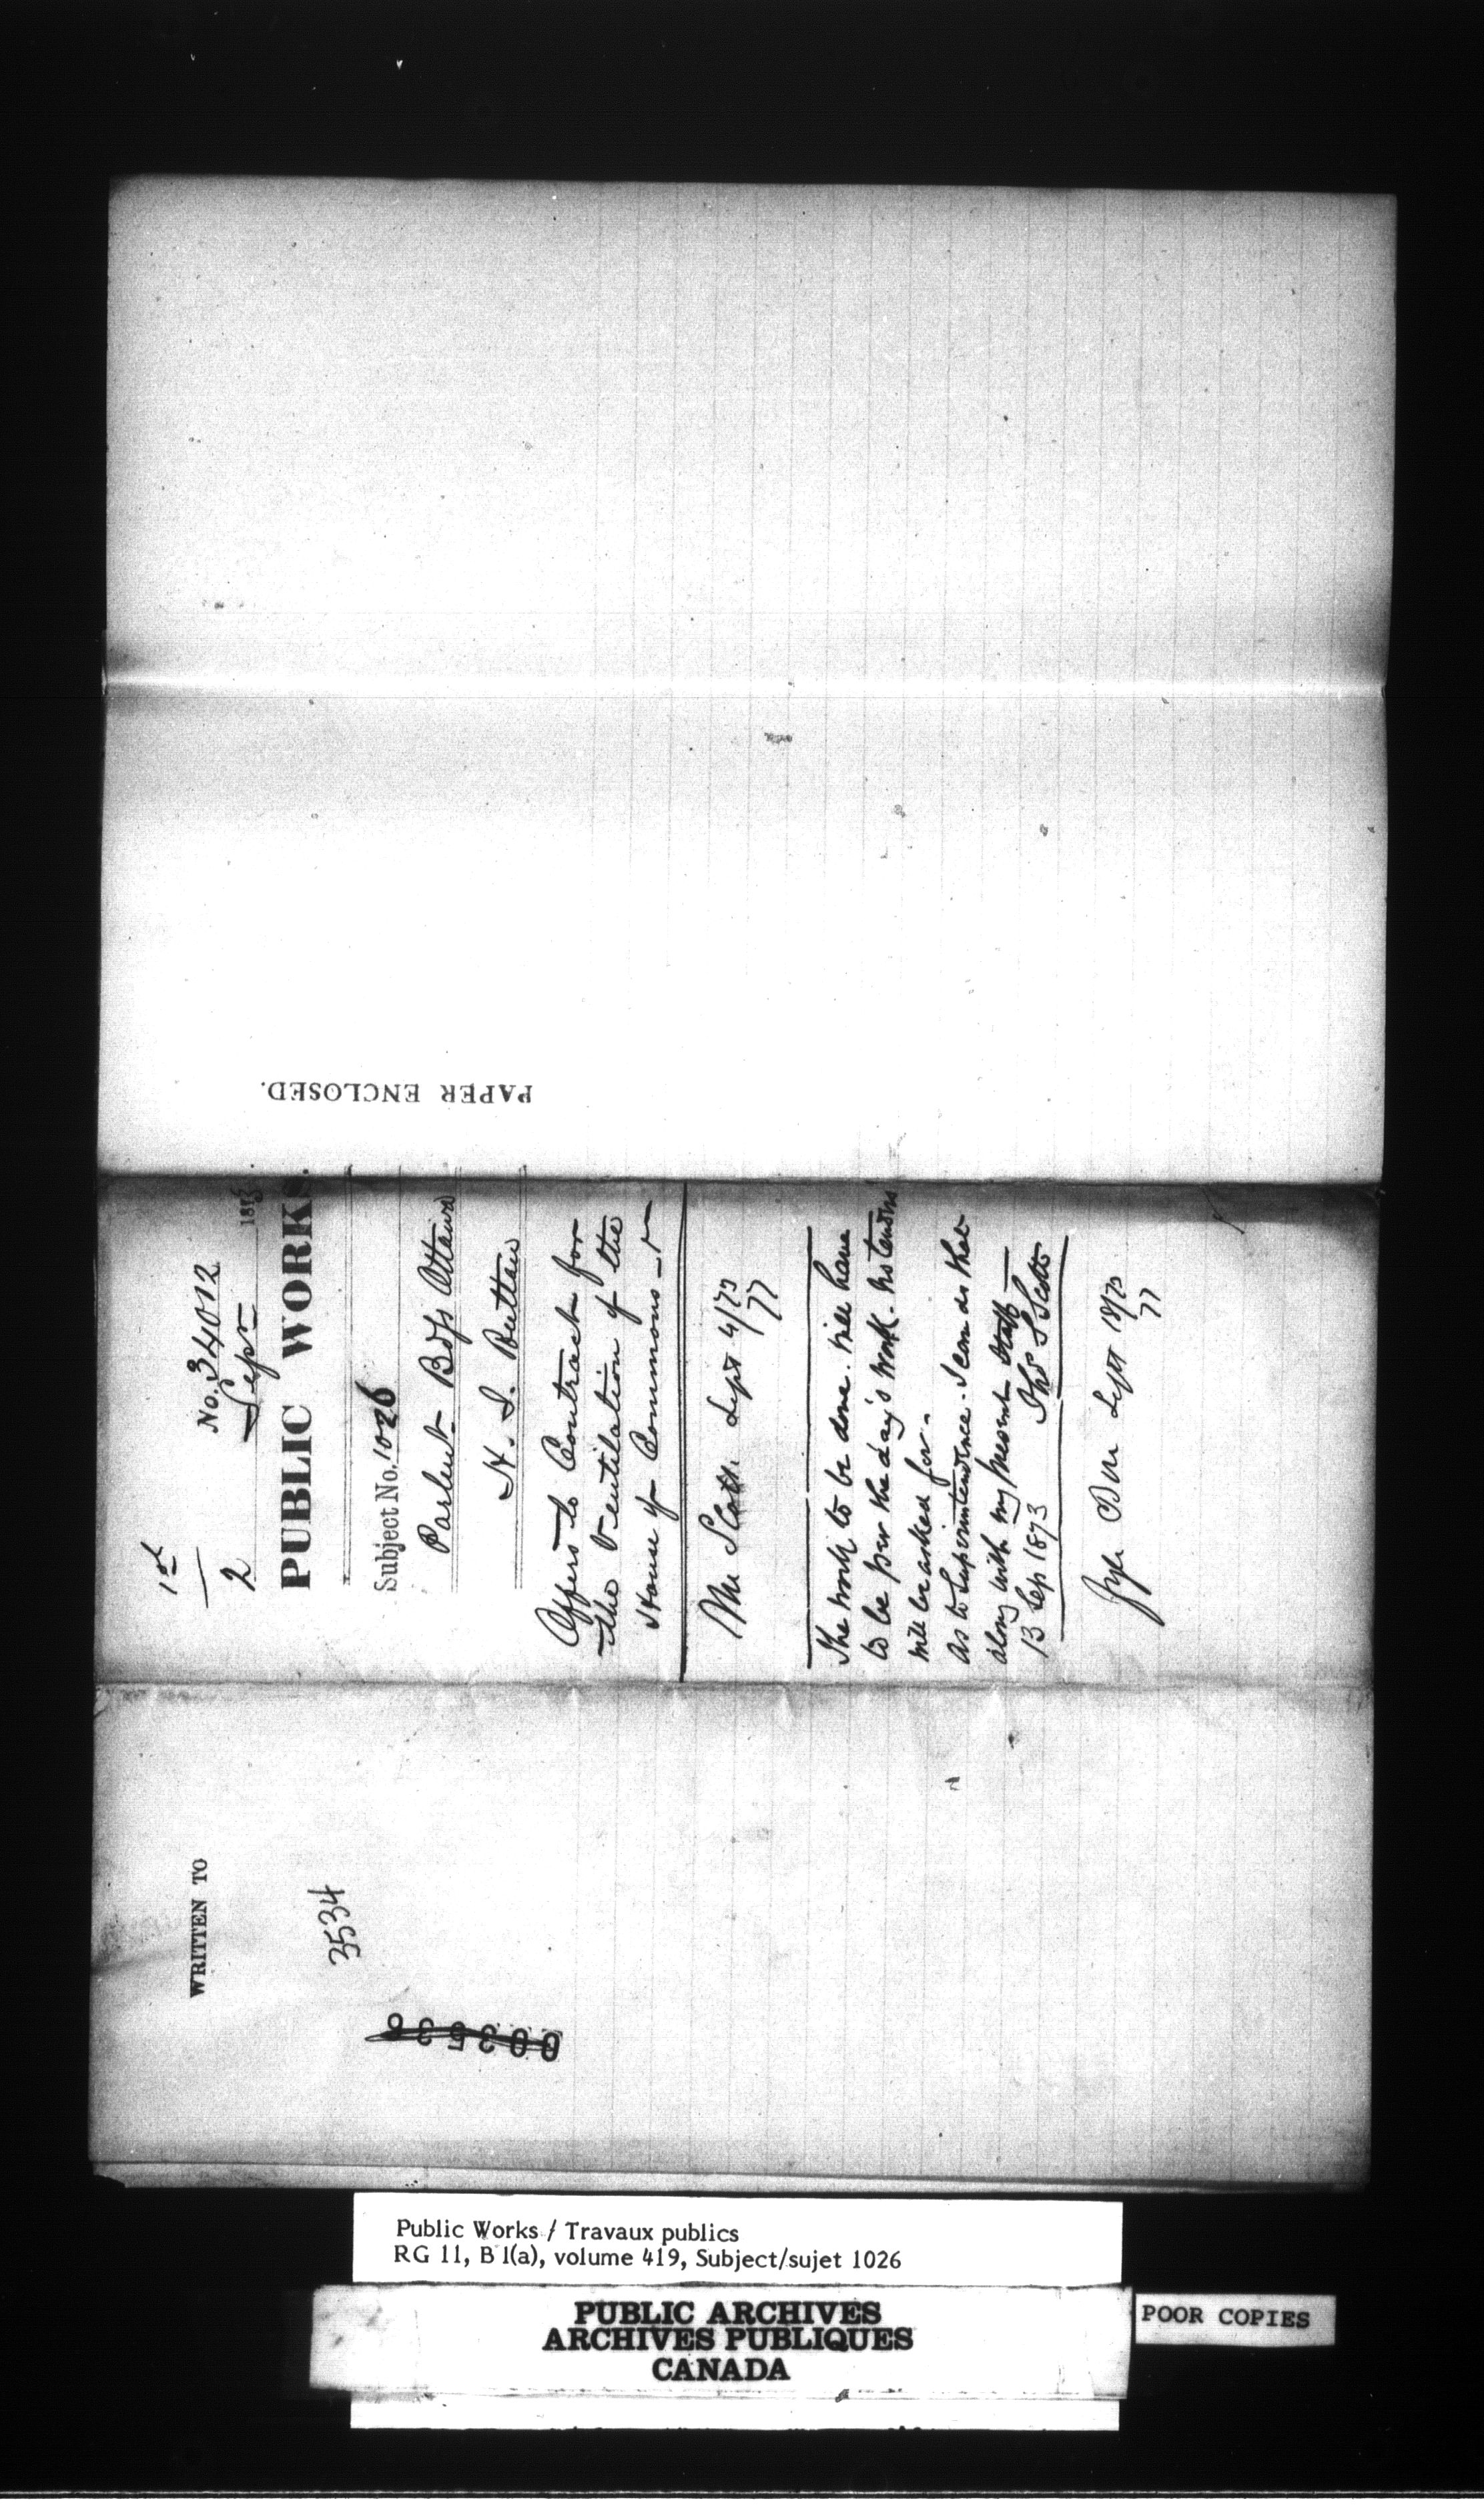 PAPER ENCLOSED.
1st
2
No. 34012
Sepr 1873
PUBLIC WORKS.
Subject No. 1026
Parlent Bdgs Ottawa
H. I. Ruttan
Offers to Contract for
the Ventilation of the
House of Commons
Mr Scott. Sept 4/73
77
The work to be done. Will have
to be per the day's work. No tenders
will be asked for.
As to Superintendence. I can do that
along with my present Staff
13 Sep 1873 Thos S Scott
Fyle Sept 18/73
77
WRITTEN TO
3534
003536
Public Works / Travaux publics
RG 11, B 1(a), volume 419, Subject/sujet 1026
PUBLIC ARCHIVES
ARCHIVES PUBLIQUES
CANADA
POOR COPIES